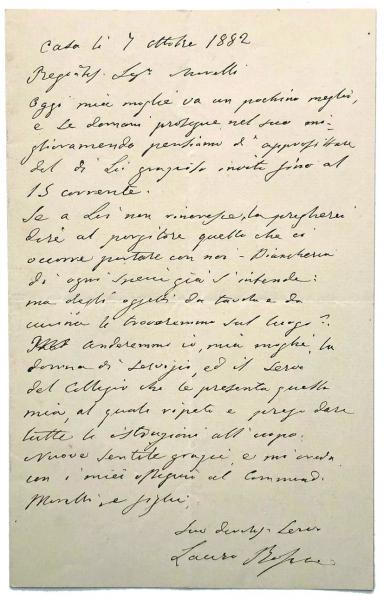 Casa lì 7 Ottobre 1882
Pregiatis. Sig. Morelli
Oggi mia moglie va un pochino meglio,
e se domani prosegue nel suo mi-
glioramento pensiamo d'approfittare
del di Lei grazioso invito fino al
15 corrente.
Se a Lei non rincresce, la pregherei
dire al porgitore quello che ci
occorre portare con noi - Biancheria
di ogni specie già s'intende:
ma degli oggetti da tavola e da
cucina le troveremo sul luogo?
Anderemmo io, mia moglie, la
donna di servizio, ed il servo
del Collegio che le presenta questa
mia, al quale ripeto e prego dare
tutte le istruzioni all'uopo.
Nuove sentite grazie e mi creda
con i miei ossequi al Commend.
Morelli, e figli,
Suo devotis. Servo
Lauro